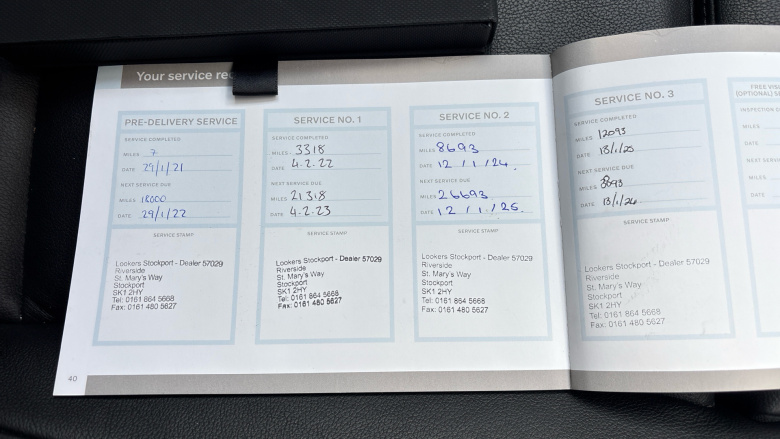 Your service rec
PRE-DELIVERY SERVICE
SERVICE COMPLETED
MILES 7
DATE 29/1/21
NEXT SERVICE DUE
MILES 18000
DATE 29/1/22
SERVICE STAMP
Lookers Stockport - Dealer 57029
Riverside
St. Mary's Way
Stockport
SK1 2HY
Tel: 0161 864 5668
Fax: 0161 480 5627
SERVICE NO. 1
SERVICE COMPLETED
MILES 3318
DATE 4.2.22
NEXT SERVICE DUE
MILES 21318
DATE 4.2.23
SERVICE STAMP
Lookers Stockport - Dealer 57029
Riverside
St. Mary's Way
Stockport
SK1 2HY
Tel: 0161 864 5668
Fax: 0161 480 5627
SERVICE NO. 2
SERVICE COMPLETED
MILES 8693
DATE 12/1/24.
NEXT SERVICE DUE
MILES 26693
DATE 12/1/25.
SERVICE STAMP
Lookers Stockport - Dealer 57029
Riverside
St. Mary's Way
Stockport
SK1 2HY
Tel: 0161 864 5668
Fax: 0161 480 5627
SERVICE NO. 3
SERVICE COMPLETED
MILES 12093
DATE 13/1/25
NEXT SERVICE DUE
MILES
DATE 13/1/26.
SERVICE STAMP
Lookers Stockport - Dealer 57029
Riverside
St. Mary's Way
Stockport
SK1 2HY
Tel: 0161 864 5668
Fax: 0161 480 5627
FREE VISU
(OPTIONAL) S
INSPECTION
MILES
DATE
NEXT SERV
MILES
DATE
40